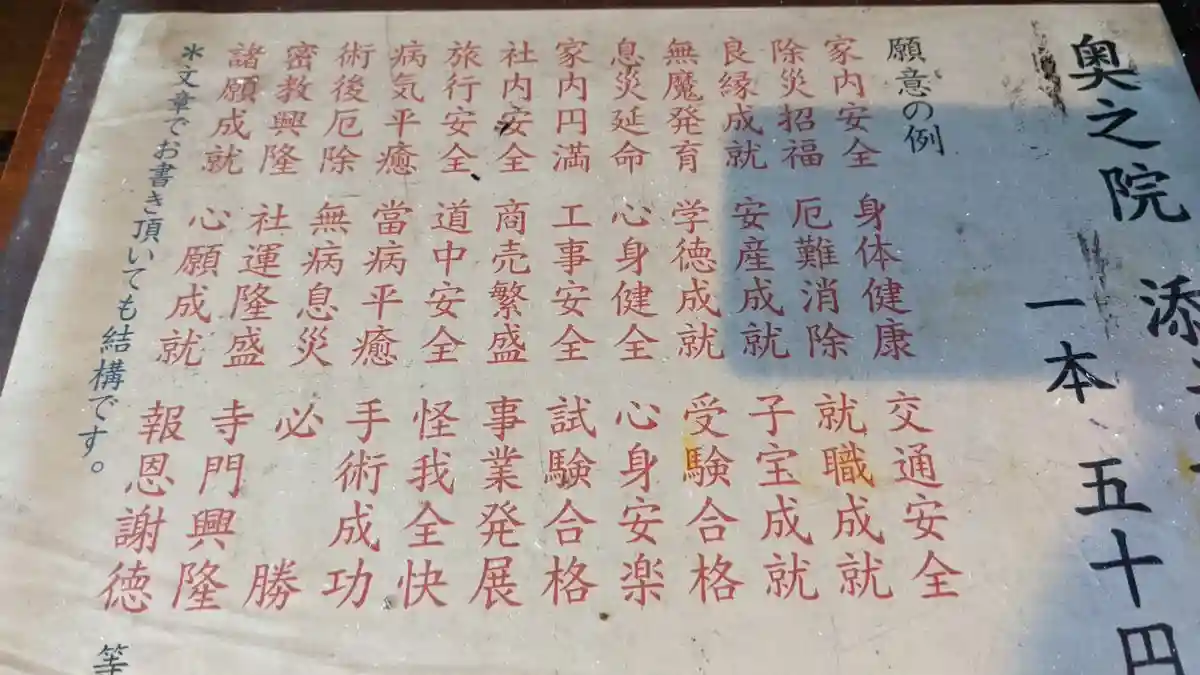 奥之院 添
一本、五十円
願意の例
家内安全 身体健康 交通安全
除災招福 厄難消除 就職成就
良縁成就 安産成就 子宝成就
無魔発育 学徳成就 受験合格
息災延命 心身健全 心身安楽
家内円満 工事安全 試験合格
社内安全 商売繁盛 事業発展
旅行安全 道中安全 怪我全快
病気平癒 當病平癒 手術成功
術後厄除 無病息災 必勝
密教興隆 社運隆盛 寺門興隆
諸願成就 心願成就 報恩謝徳 等
＊文章でお書き頂いても結構です。